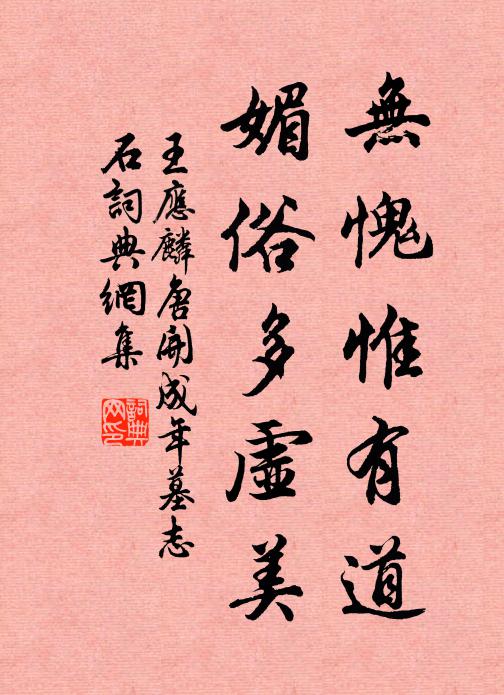 無愧惟有道
媚俗多虛美
王應麟唐開成年墓志
石詞典網集
詞典
网印